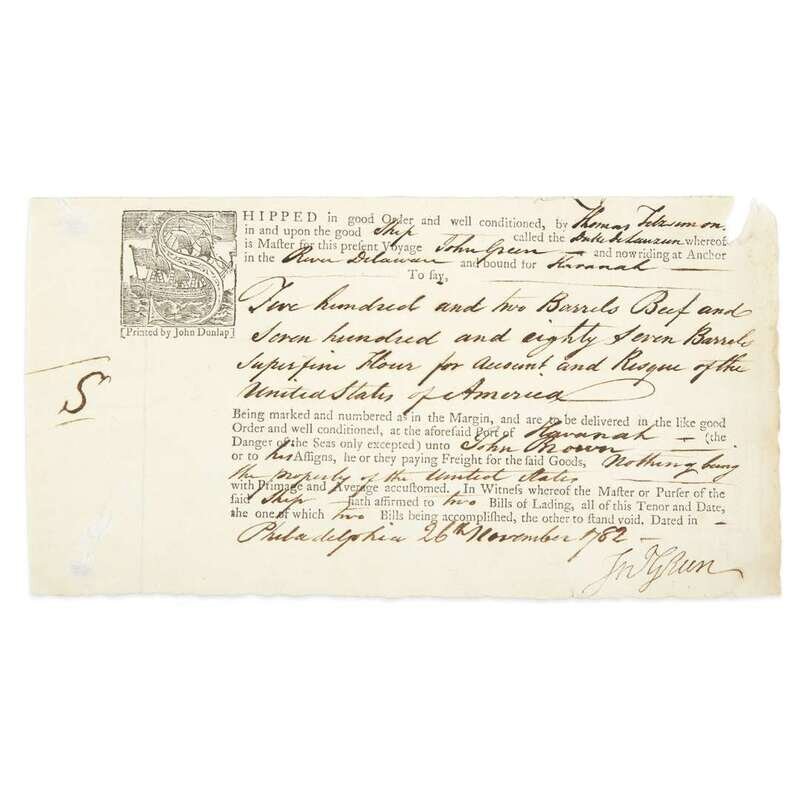 SHIPPED in good Order and well conditioned, by Thomas Fitzsimon
in and upon the good Ship called the Duke de Lauzun whereof
is Master for this present Voyage John Green and now riding at Anchor
in the River Delaware and bound for Havanah
To say,
[Printed by John Dunlap]
Five hundred and two Barrels Beef and
Seven hundred and eighty Seven Barrels
Superfine Flour for Account and Risque of the
United States of America
S
Being marked and numbered as in the Margin, and are to be delivered in the like good
Order and well conditioned, at the aforesaid Port of Havanah (the
Danger of the Seas only excepted) unto John Brown
or to his Assigns, he or they paying Freight for the said Goods, Nothing being
the property of the United States
with Primage and Average accustomed. In Witness whereof the Master or Purser of the
said Ship hath affirmed to two Bills of Lading, all of this Tenor and Date,
the one of which two Bills being accomplished, the other to stand void. Dated in
Philadelphia 26th November 1782
Jno Green